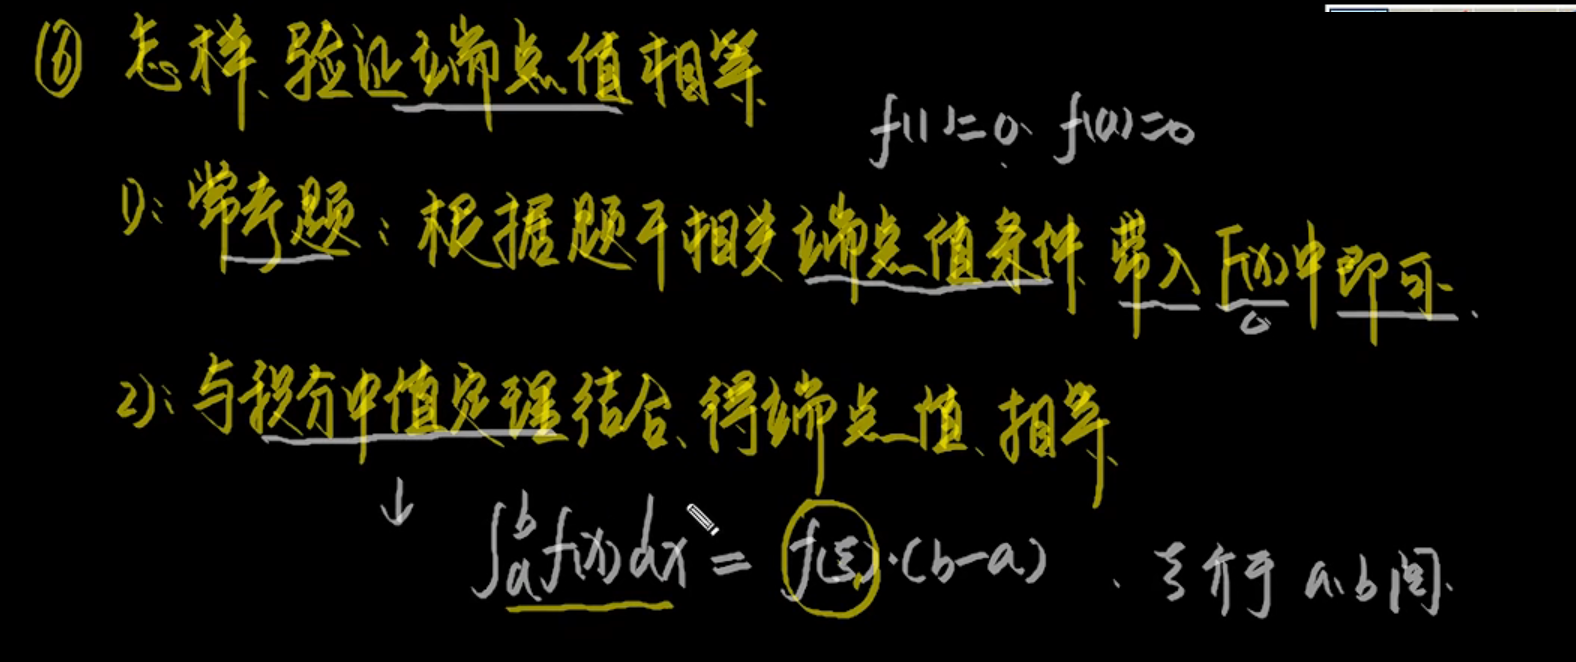 ⑥ 怎样验证端点值相等
f(1)=0. f(0)=0
1): 常考题: 根据题干相关端点值条件带入F(x)中即可.
2): 与积分中值定理结合、得端点值相等
↓
∫ₐᵇf(x)dx = f(ξ)·(b-a) . ξ介于a,b间.